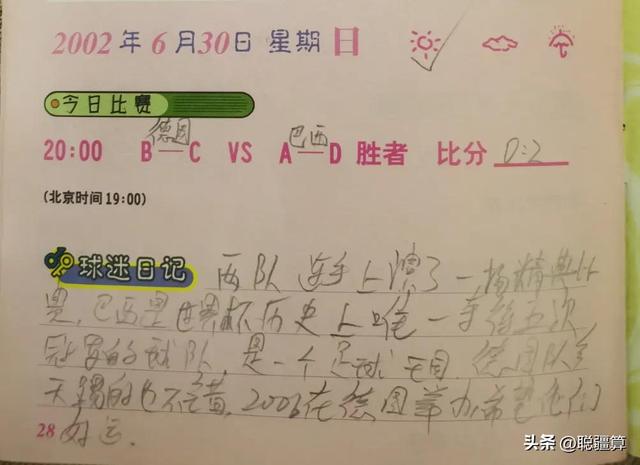 2002年6月30日 星期日
今日比赛
德国 巴西
20:00 B—C VS A—D 胜者 比分 0:2
(北京时间19:00)
球迷日记 两队联手上演了一场精典比
赛,巴西是世界杯历史上唯一夺得五次
冠军的球队,是一个足球王国,德国队今
天踢的也不错,2006在德国举办,希望他们
好运.
28
头条 @聪疆算